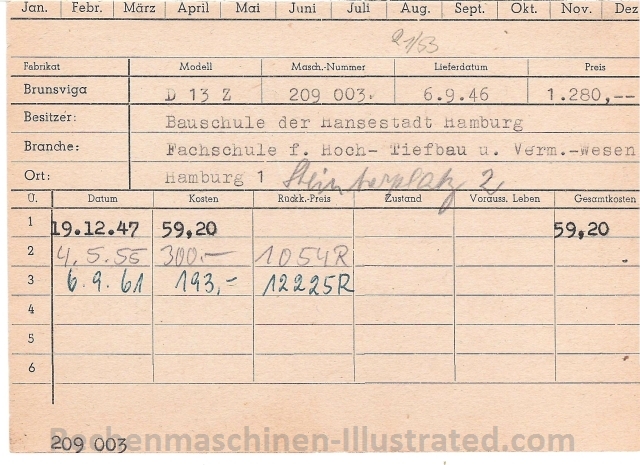 Jan. Febr. März April Mai Juni Juli Aug. Sept. Okt. Nov. Dez
21/53
Fabrikat Modell Masch.-Nummer Lieferdatum Preis
Brunsviga D 13 Z 209 003. 6.9.46 1.280,--
Besitzer: Bauschule der Hansestadt Hamburg
Branche: Fachschule f. Hoch- Tiefbau u. Verm.-Wesen
Ort: Hamburg 1 Steintorplatz 2
Ü. Datum Kosten Rückk.-Preis Zustand Vorauss. Leben Gesamtkosten
1 19.12.47 59,20 59,20
2 4.5.55 300.- 1054R
3 6.9.61 193,- 12225R
4
5
6
Rechenmaschinen-Illustrated.com
209 003